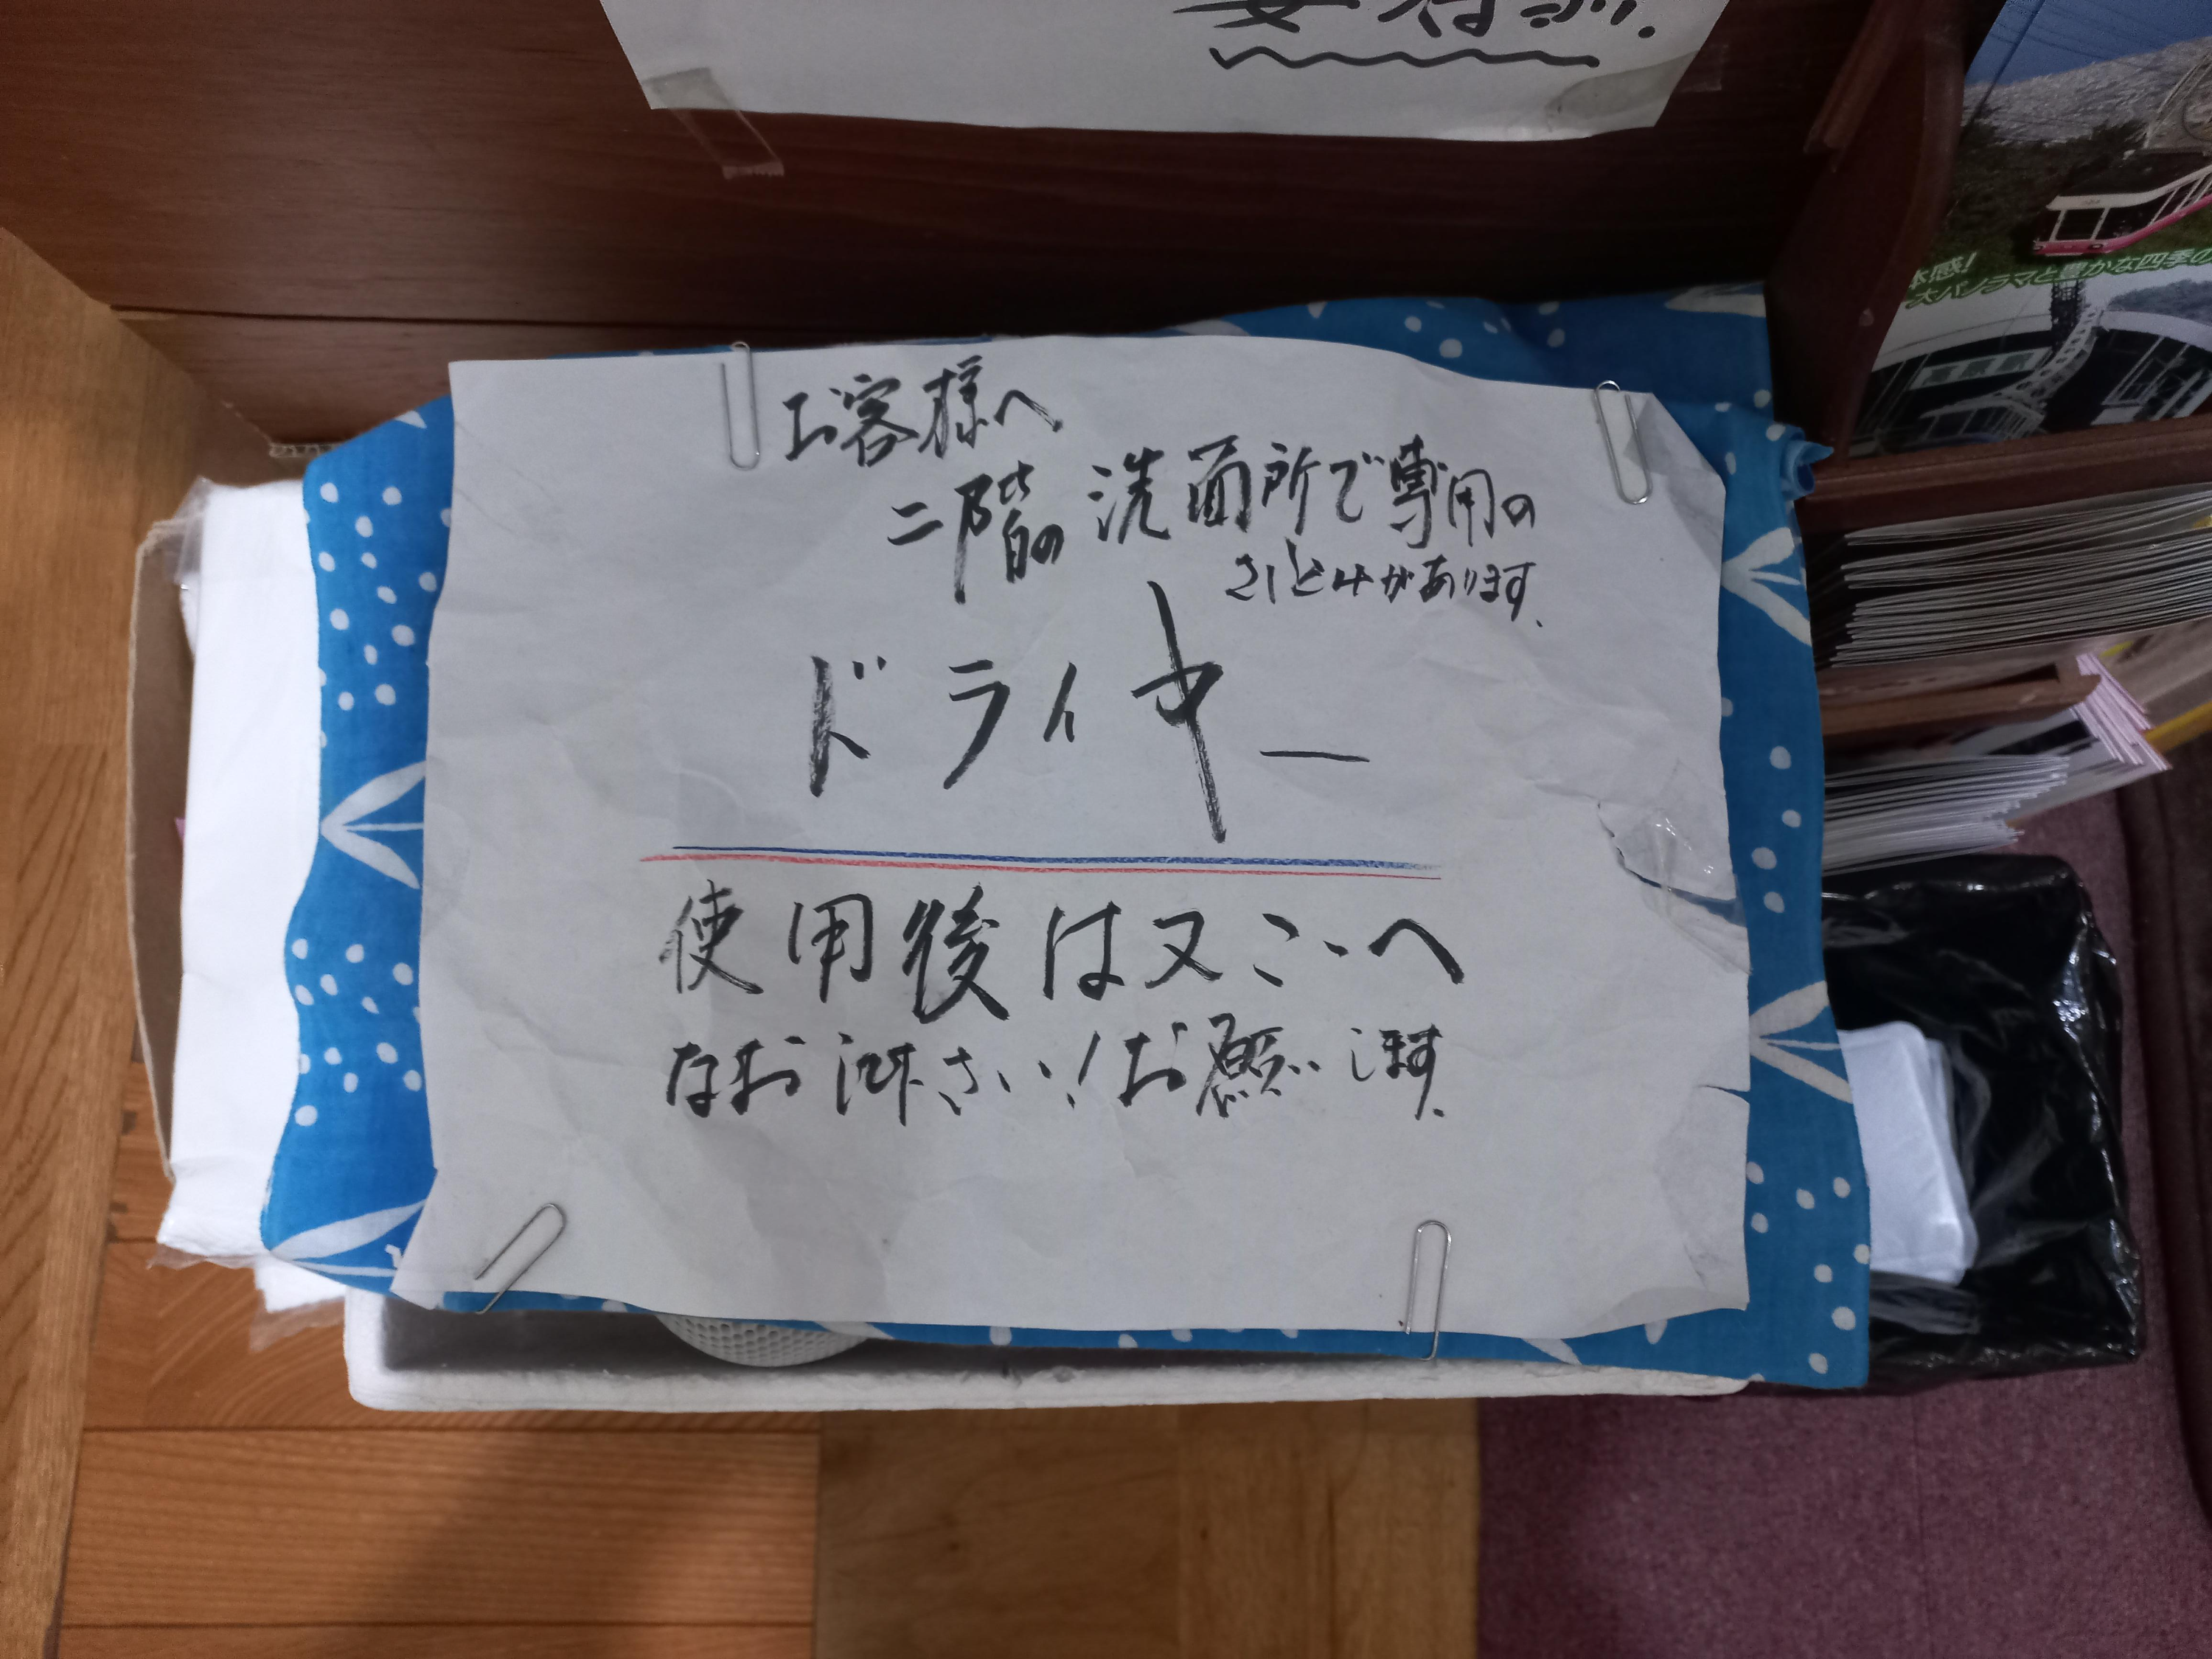 お客様へ
二階の洗面所で専用の
さしこみがあります、
ドライヤー
使用後は又こゝへ
なお し下さい!お願いします、
体感!
大パノラマと豊かな四季の